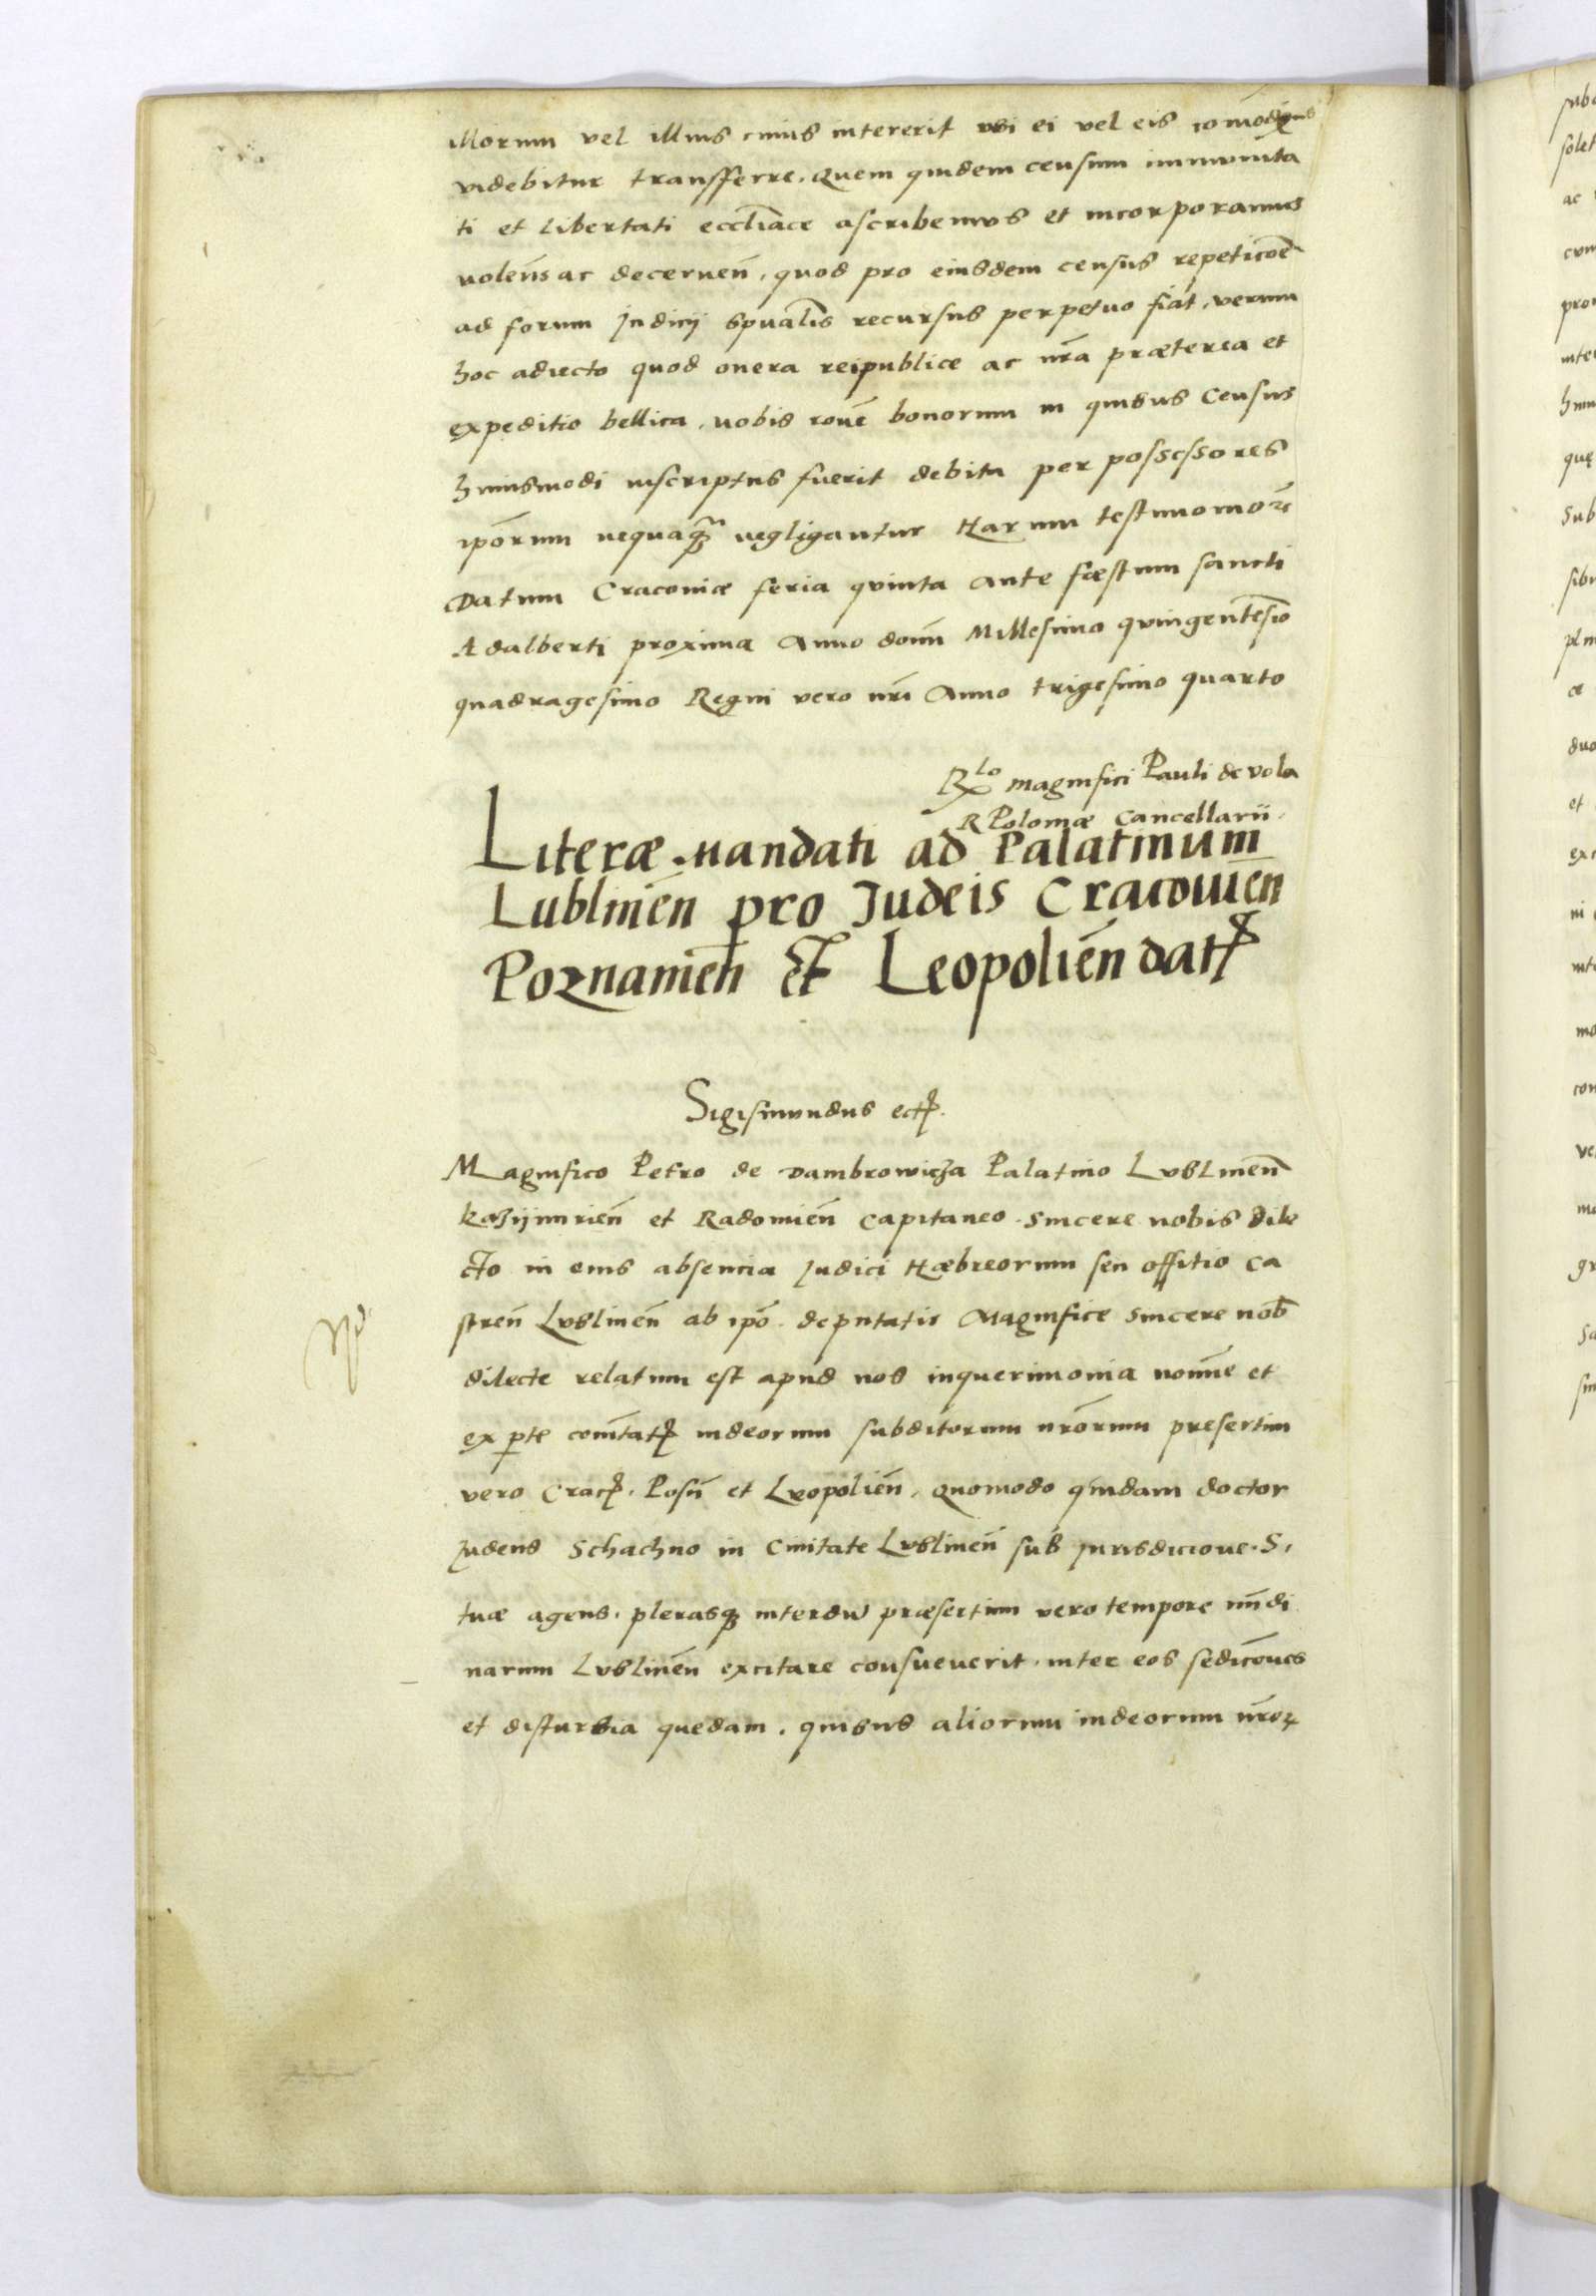 illorum vel illius cuius intererit ubi ei vel eis comodius
videbitur transfferre. Quem quidem censum immunita
ti et libertati eccliasce ascribemus et incorporamus
volens ac decernen̄, quod pro eiusdem census repeticōe
ad forum Judicij spualis recursus perpetuo fiat, verum
hoc adiecto quod onera reipublice ac nr̄a præterea et
expeditio bellica, nobis rōne bonorum in quibus Census
huiusmodi inscriptus fuerit debita per possessores
ipōrum nequaq̄ negligantur Harum testimonio
Datum Cracoviæ feria quinta ante fæstum sancti
Adalberti proxima Anno domī Millesimo quingentesīo
quadragesimo Regni vero nr̄i Anno trigesimo quarto
Rlo magnifici Pauli de vola
R Poloniæ Cancellarii.
Literæ mandati ad Palatinum
Lublinēn pro Judeis Cracovien̄
Poznanien̄ et Leopoliēn dat
Sigismundus ect.
Magnifico Petro de Dambrowicza Palatino Lublinen̄
kazijmirien̄ et Radomien̄ capitaneo. Sincere nobis dile
cto in eius absencia Judici Hæbreorum seu offitio ca
stren̄ Lublinen̄ ab ipō. deputatis Magnifice sincere nob̄
dilecte relatum est apud nos inquerimonia noīne et
ex pte com̄tat iudeorum subditorum nr̄orum presertim
vero Crac. Posn̄ et Leopolien̄, quomodo quidam doctor
Judeus Schachno in Civitate Lublinen̄ sub jurisdicione. S.
tuæ agens. plerasq interdū præsertim vero tempore nun̄di
narum Lublinēn excitare consueverit. inter eos sedicōnes
et disturbia quedam. quibus aliorum iudeorum nr̄oꝝ